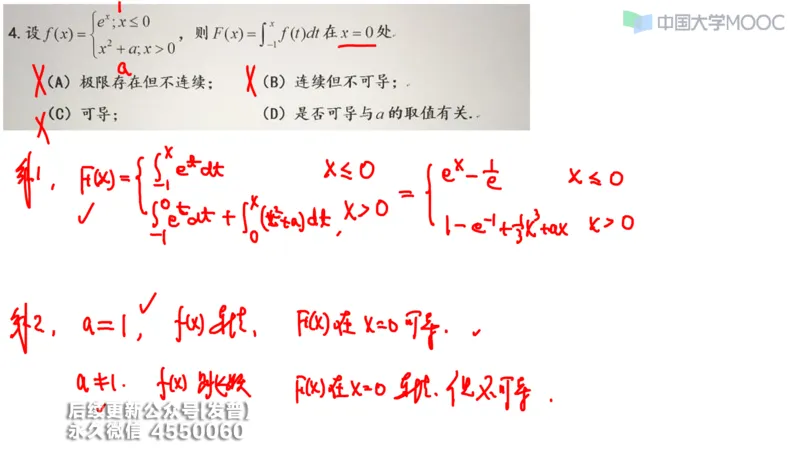 中国大学MOOC
4. 设 f(x) = { e^x; x ≤ 0
x² + a; x > 0 , 则 F(x) = ∫_{-1}^{x} f(t)dt 在 x = 0 处
1
a
X (A) 极限存在但不连续; X (B) 连续但不可导;
X (C) 可导; (D) 是否可导与 a 的取值有关.
1, F(x) = { ∫_{-1}^{x} e^t dt x ≤ 0
∫_{-1}^{0} e^t dt + ∫_{0}^{x} (t²+a) dt, x > 0
= { e^x - 1/e x ≤ 0
1 - e^{-1} + 1/3 x³ + ax x > 0
✓
2, a = 1, ✓ f(x) 连续, F(x) 在 x=0 可导. ✓
a ≠ 1. f(x) F(x) 在 x=0 连续. 但不可导.
✓
后续更新公众号[发普]
永久微信 4550060